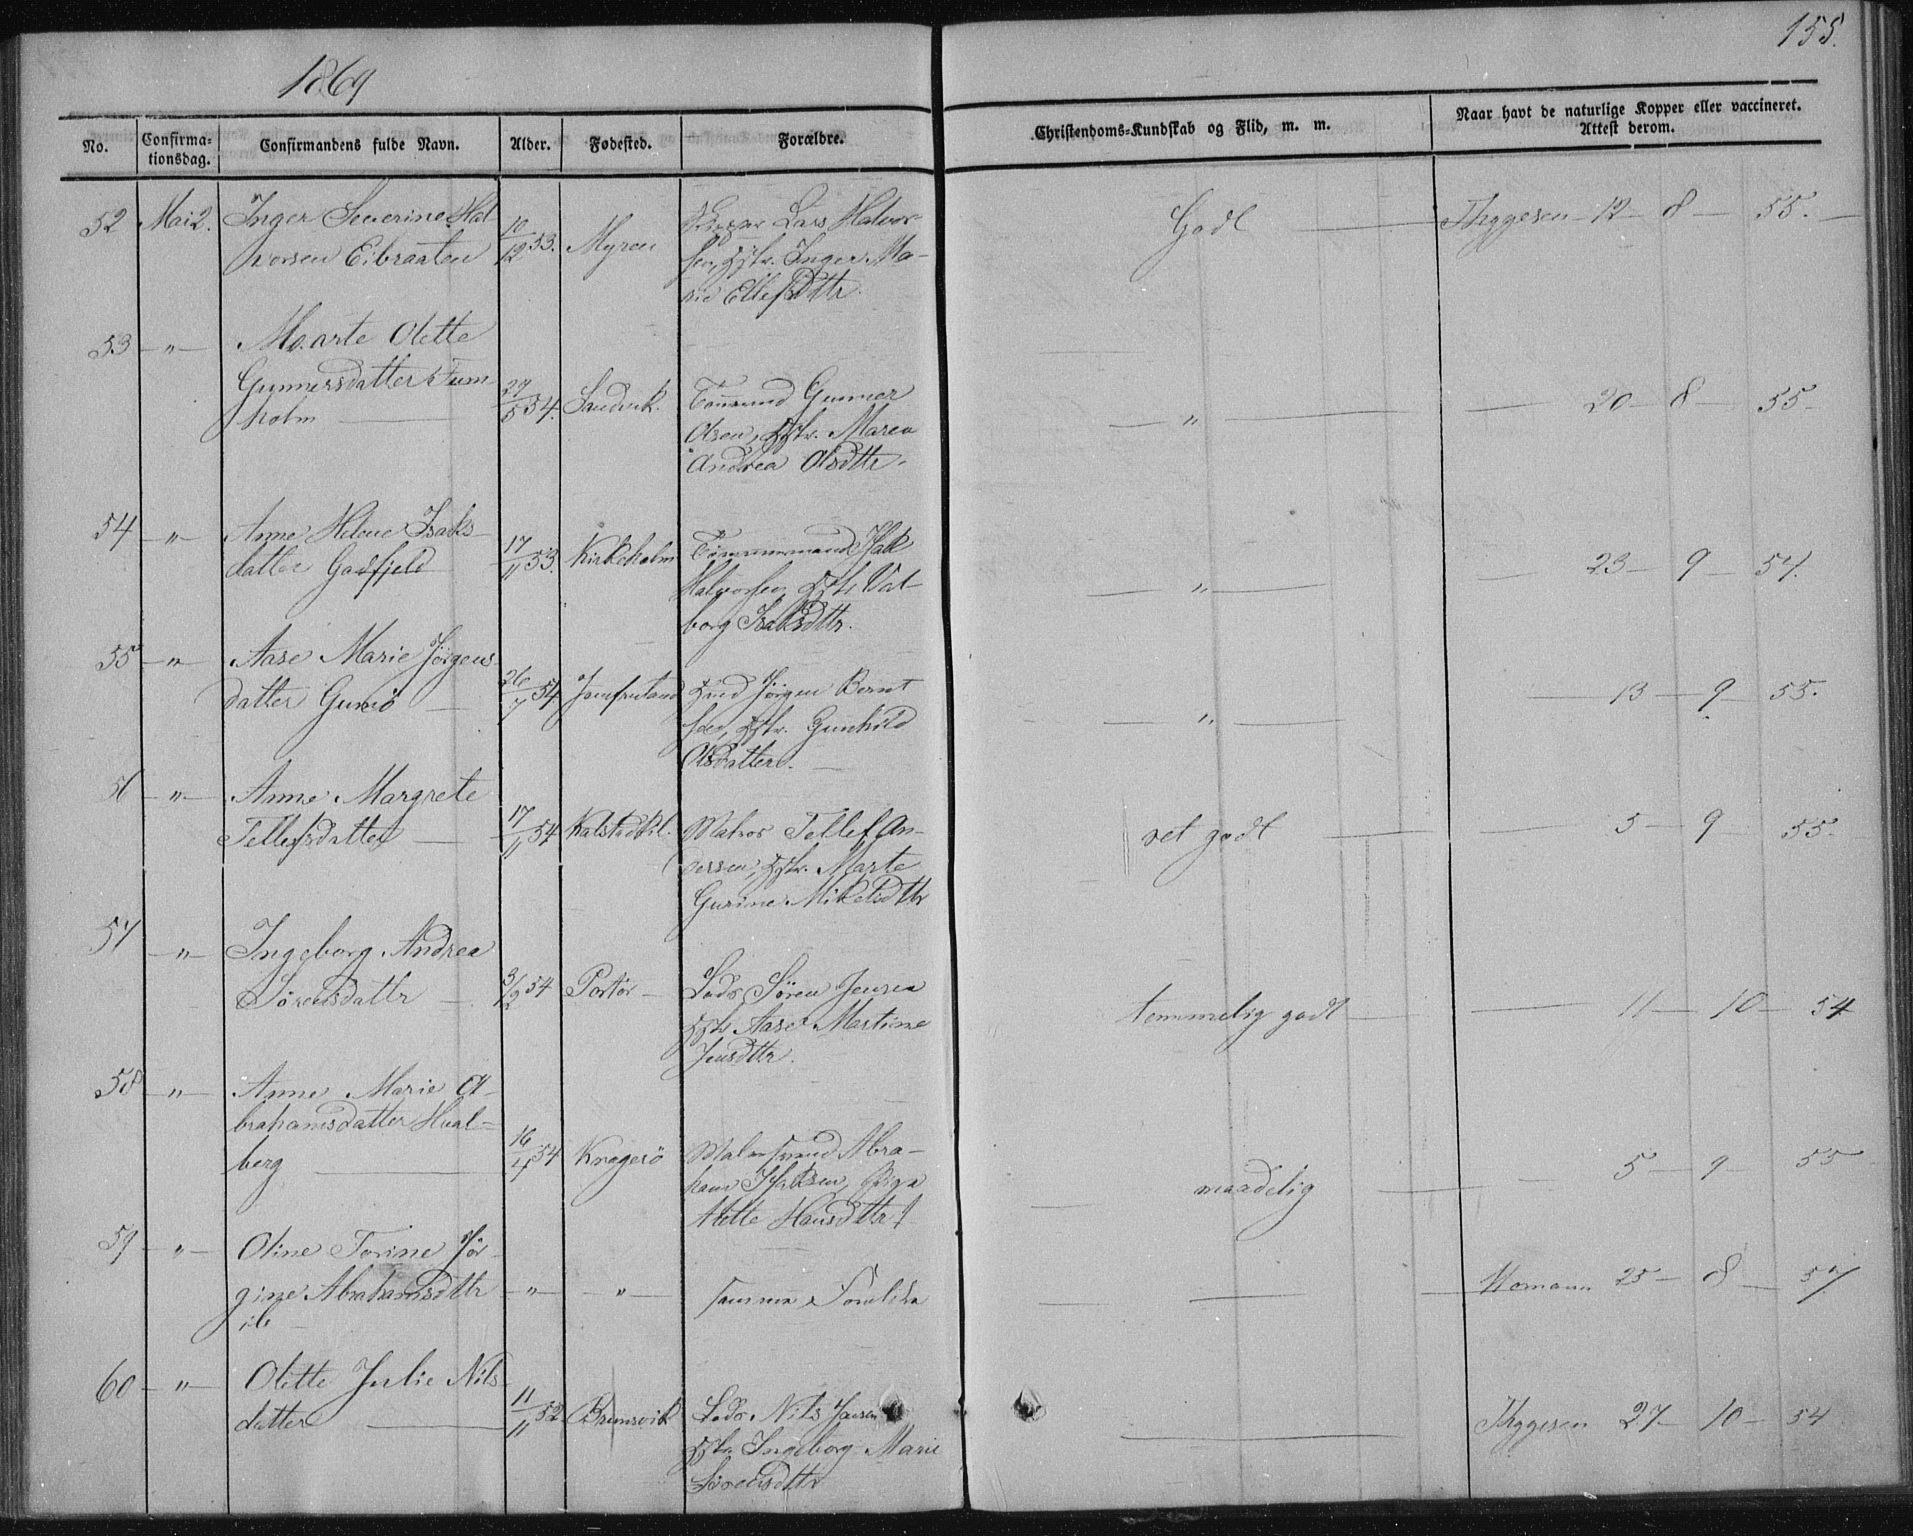 155.
1869
No.
Confirma-
tionsdag.
Confirmandens fulde Navn.
Alder.
Fødested.
Forældre.
Christendoms-Kundskab og Flid, m. m.
Naar havt de naturlige Kopper eller vaccineret.
Attest derom.
52 Mai 2. Inger Severine Hal
vorsen Eibraaten
10/12 53. Myren
Lars Halvor-
sen, Hstr. Inger Ma-
rie Ellefsdttr.
Godt
Thygesen 12 - 8 - 55.
53 - " - Marte Olette
Gunnersdatter Tum-
holm
27/5 54. Sandvik.
Tømrmd Gunner
Olsen, Hstr. Maren
Andrea Olsdttr.
"
20 - 8 - 55
54 - " - Anne Helene Isaks
datter Gadfjeld
17/11 53. Kirkeholm
Tømmermand Isak
Halvorsen, Hstr. Val-
borg Isaksdttr.
"
23 - 9 - 57.
55 - " - Aase Marie Jørgens
datter Gumø
26/7 54 Jomfruland
Jørgen Bernt
sen, Hstr. Gunhild
Olsdatter.
"
13 - 9 - 55.
56 - " - Anne Margrete
Tellefsdatter
17/11 54 Kalstadkil.
Matros Tellef An-
dersen, Hstr. Marte
Gurine Mikelsdttr
ret godt
5 - 9 - 55.
57 - " - Ingeborg Andrea
Sørensdattr
3/2 54 Portør
Lods Søren Jensen
Hstr Aase Martine
Jensdttr.
temmelig godt
11 - 10 - 54
58 - " - Anne Marie A-
brahamsdatter Hval-
berg
16/4 54 Kragerø
Abra-
ham Isaksen,
Mette Hansdttr
maadelig
5 - 9 - 55
59 - " - Oline Torine Jør-
gine Abrahamsdttr
ib
- " - - " -
samme Forældre
Homann 25 - 8 - 57
60 - " - Olette Julie Nils
datter
11/11 52 Brunsvik
Lods Nils Jansen
Hstr Ingeborg Marie
Sørensdttr
Thygesen 27 - 10 - 54